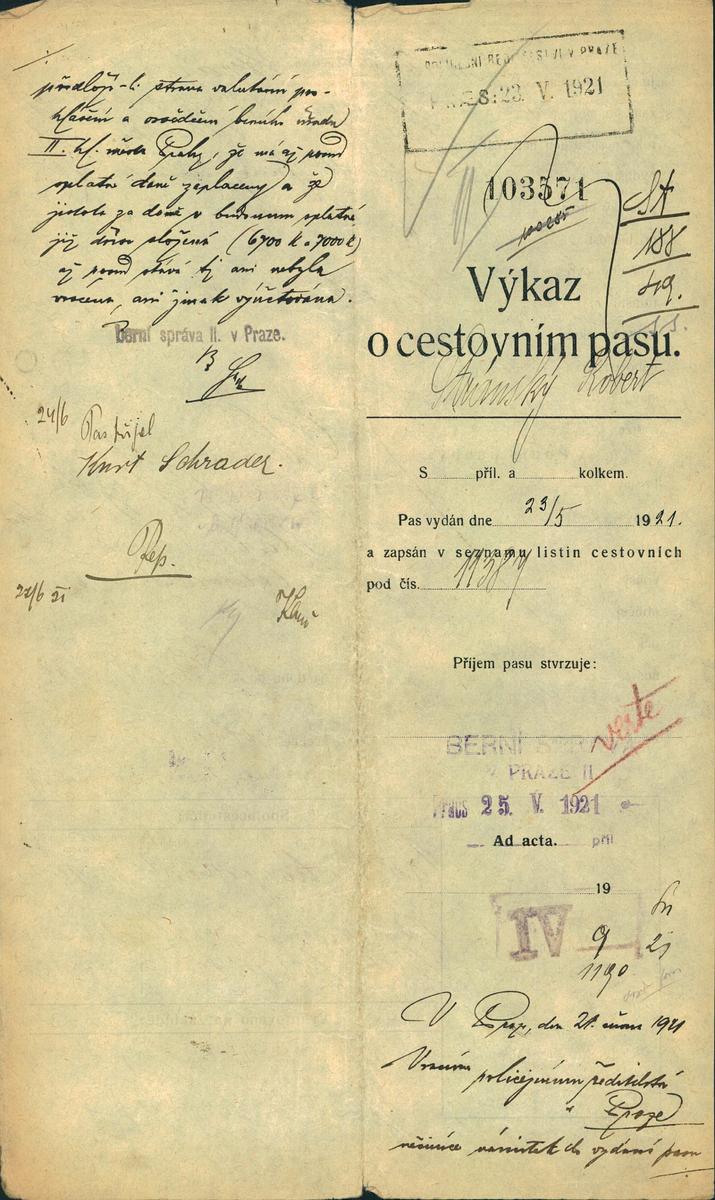 předloží-li strana valutární pro-
hlášení a osvědčení berního úřadu
II. hl. města Prahy, že má až posud
splatné daně zaplaceny a že
jistota za daně v budoucnu splatné
již dříve složená (6700 K a 7000 K)
až posud stává tj ani nebyla
vrácena, ani jinak vyúčtována.
Berní správa II. v Praze.
24/6
Pas přijal
Kurt Schrader.
Rep.
22/6 21
POLICEJNÍ ŘEDITELSTVÍ V PRAZE
PRAES: 23. V. 1921
103571
St
188
49.
Výkaz
o cestovním pasu.
Stránský Robert
S příl. a kolkem.
Pas vydán dne 23/5 1921.
a zapsán v seznamu listin cestovních
pod čís. 11387
Příjem pasu stvrzuje:
verte
BERNÍ SPRÁVA
V PRAZE II
Praes 25. V. 1921
Ad acta. příl
19
IV
9
21
1190
V Praze, dne 21. února 1921
Vráceno
policejnímu ředitelství
v Praze
nečiníce námitek do vydání pasu